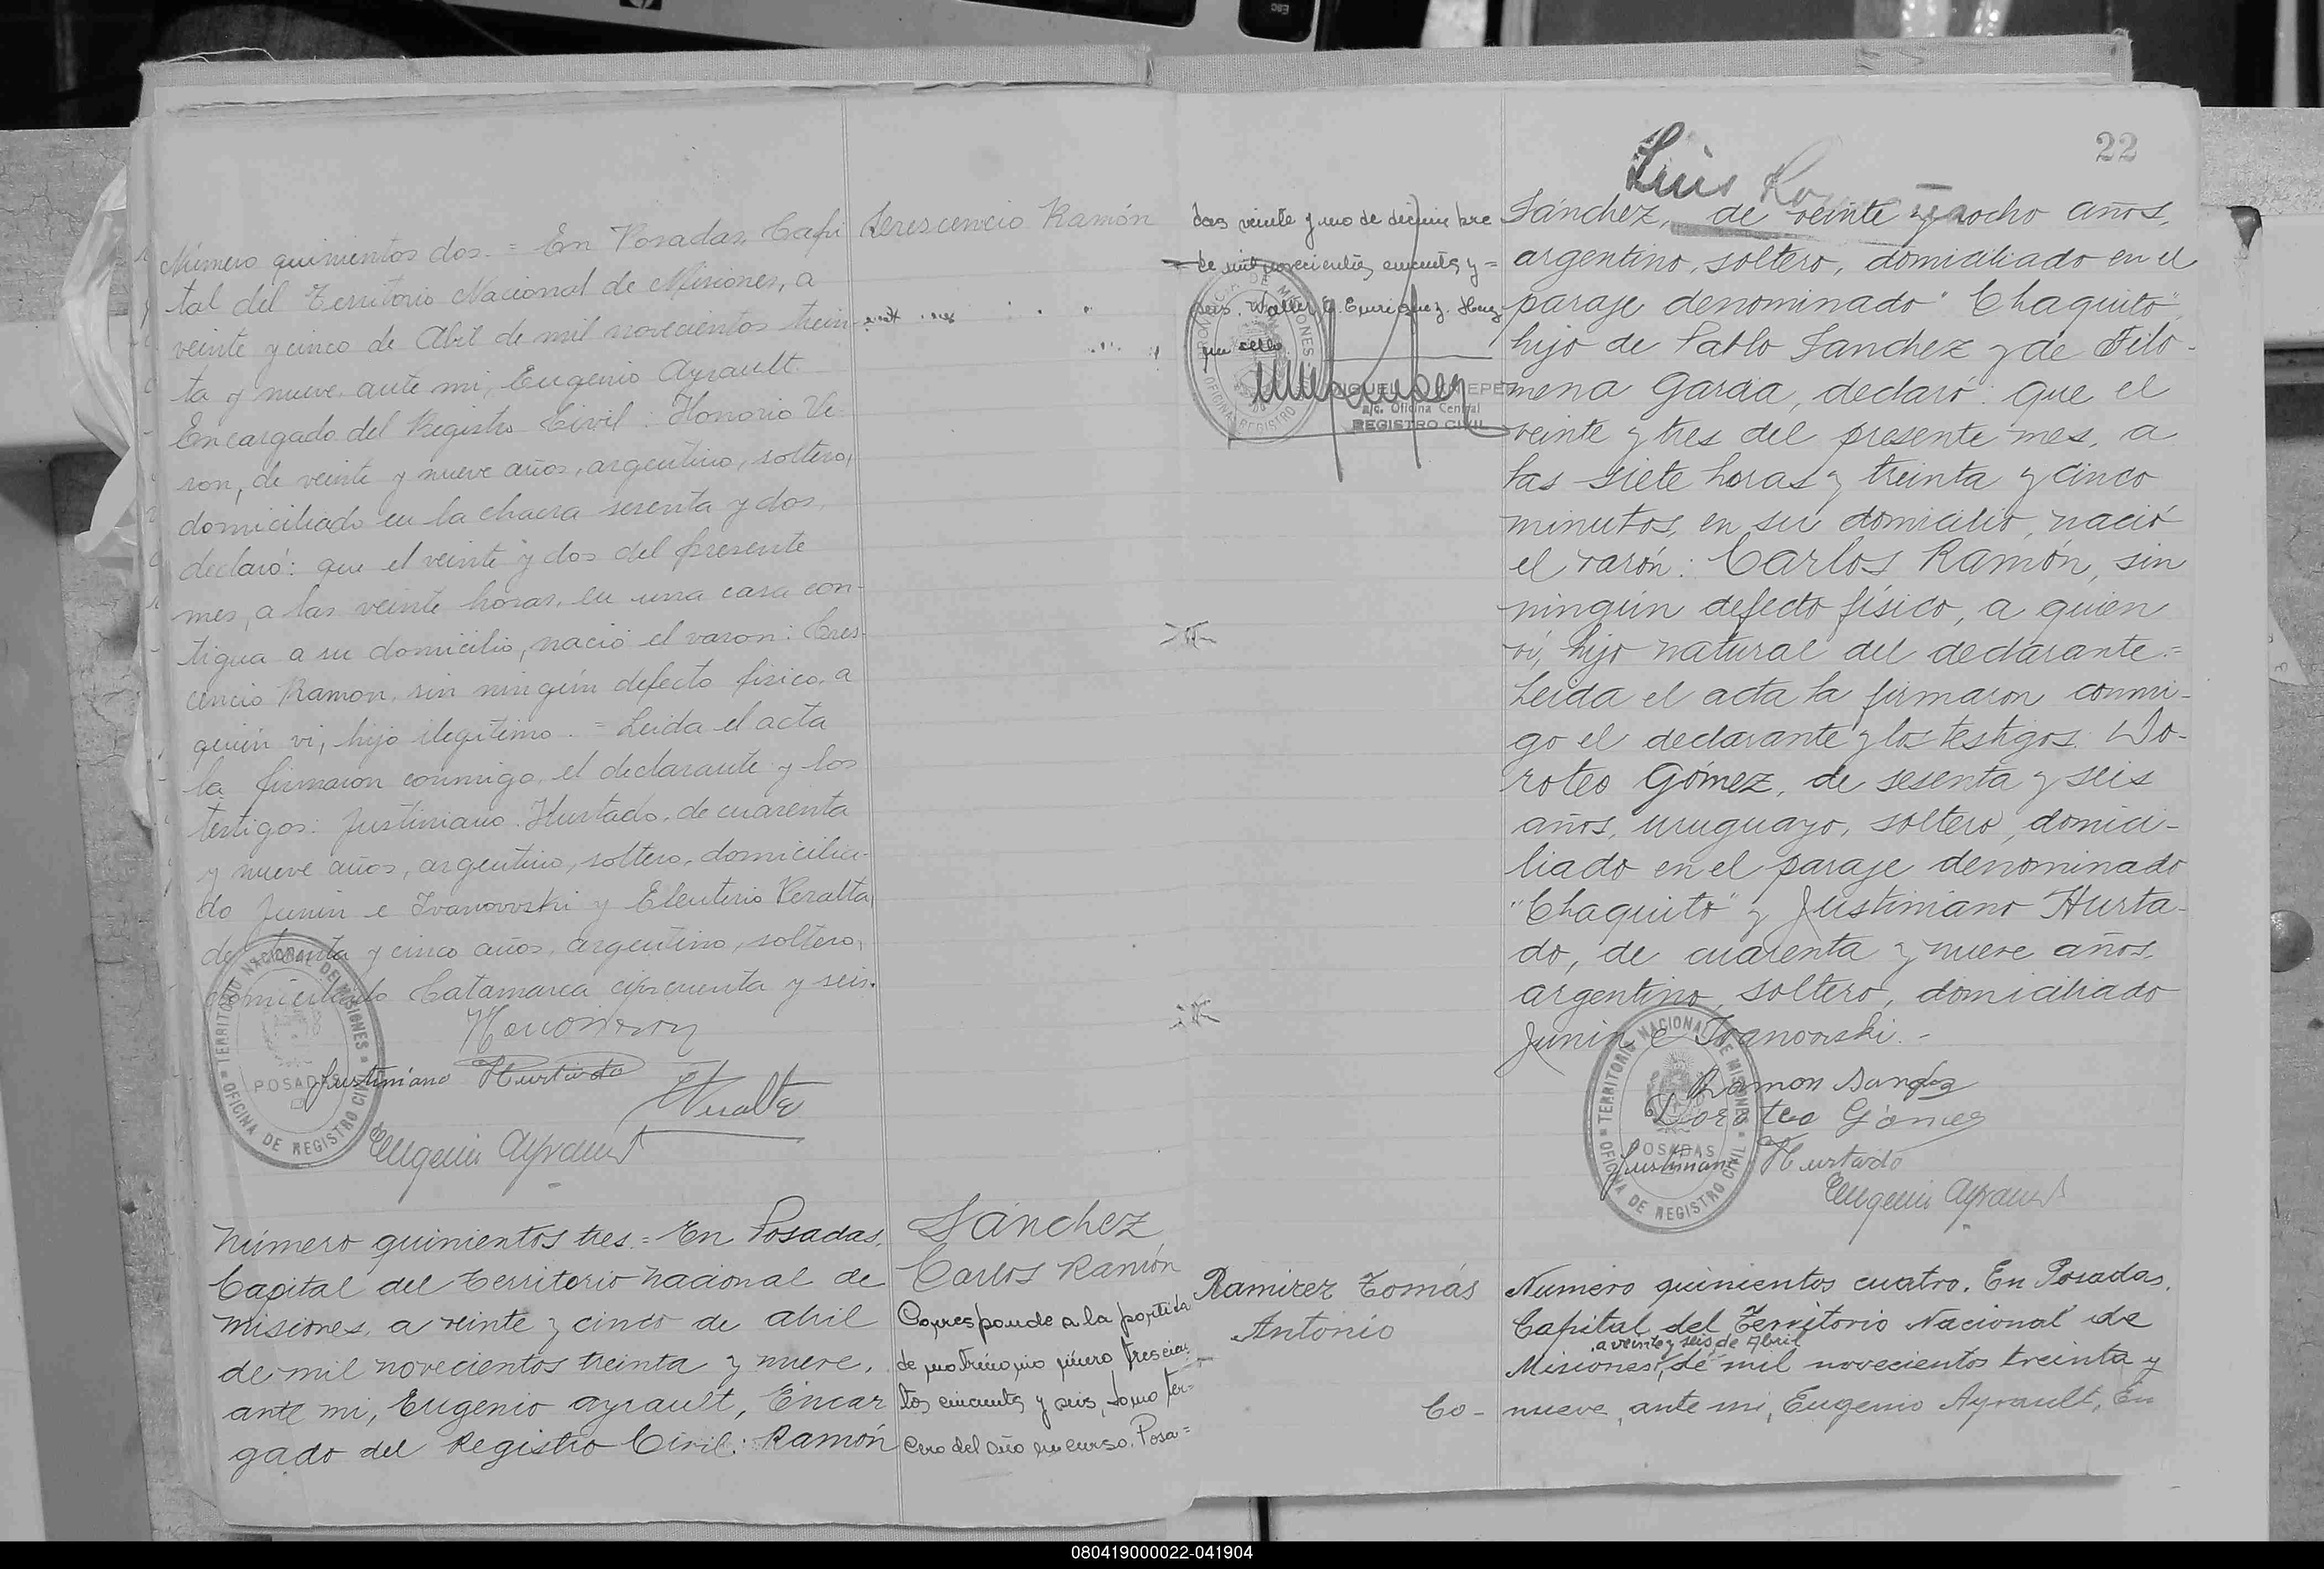 Número quinientos dos. = En Posadas, Capi
tal del Territorio Nacional de Misiones, a
veinte y cinco de Abril de mil novecientos trein-
ta y nueve, ante mi, Eugenio Ayrault.
Encargado del Registro Civil. Honorio Ve-
ron, de veinte y nueve años, argentino, soltero,
domiciliado en la chacra sesenta y dos,
declaró: que el veinte y dos del presente
mes, a las veinte horas, en una casa con-
tigua a su domicilio, nació el varon: Cres-
cencio Ramon, sin ningún defecto fisico, a
quien vi, hijo ilegitimo. = Leida el acta
la firmaron conmigo, el declarante y los
testigos: Justiniano Hurtado, de cuarenta
y nueve años, argentino, soltero, domicilia-
do Junin e Ivanovski y Eleuterio Peralta,
de treinta y cinco años, argentino, soltero,
domiciliado Catamarca cincuenta y seis.
Justiniano Hurtado
EPeralta
Eugenio Ayrault
TERRITORIO NACIONAL DE MISIONES
POSADAS
OFICINA DE REGISTRO CIVIL
Crescencio Ramón
Número quinientos tres. = En Posadas,
Capital del Territorio Nacional de
Misiones, a veinte y cinco de abril
de mil novecientos treinta y nueve,
ante mi, Eugenio Ayrault, Encar
gado del Registro Civil: Ramón
Sánchez
Carlos Ramón
Corresponde a la partida
de matrimonio número trescien
tos cincuenta y seis, tomo ter=
cero del año en curso. Posa=
das veinte y uno de diciembre
de mil novecientos cincuenta y =
seis. Walter E. Enriquez. Hay
un sello.
PROVINCIA DE MISIONES
OFICINA REGISTRO
a/c. Oficina Central
REGISTRO CIVIL
22
Luis
Sánchez, de veinte y ocho años,
argentino, soltero, domiciliado en el
paraje denominado "Chaquito"
hijo de Pablo Sanchez y de Filo-
mena Garcia, declaró: que el
veinte y tres del presente mes, a
las siete horas y treinta y cinco
minutos, en su domicilio, nació
el varón: Carlos Ramón, sin
ningún defecto físico, a quien
vi, hijo natural del declarante. =
Leida el acta la firmaron conmi-
go el declarante y los testigos: Do-
roteo Gómez, de sesenta y seis
años, uruguayo, soltero, domici-
liado en el paraje denominado
"Chaquito" y Justiniano Hurta-
do, de cuarenta y nueve años,
argentino, soltero, domiciliado
Junin e Ivanovski. -
Ramon Sanchez
Doroteo Gómez
Justiniano Hurtado
Eugenio Ayrault
TERRITORIO NACIONAL DE MISIONES
POSADAS
OFICINA DE REGISTRO CIVIL
Ramirez Tomás
Antonio
Co-
Numero quinientos cuatro. En Posadas,
Capital del Territorio Nacional de
a veinte y seis de Abril
Misiones, de mil novecientos treinta y
nueve, ante mi, Eugenio Ayrault, En
080419000022-041904